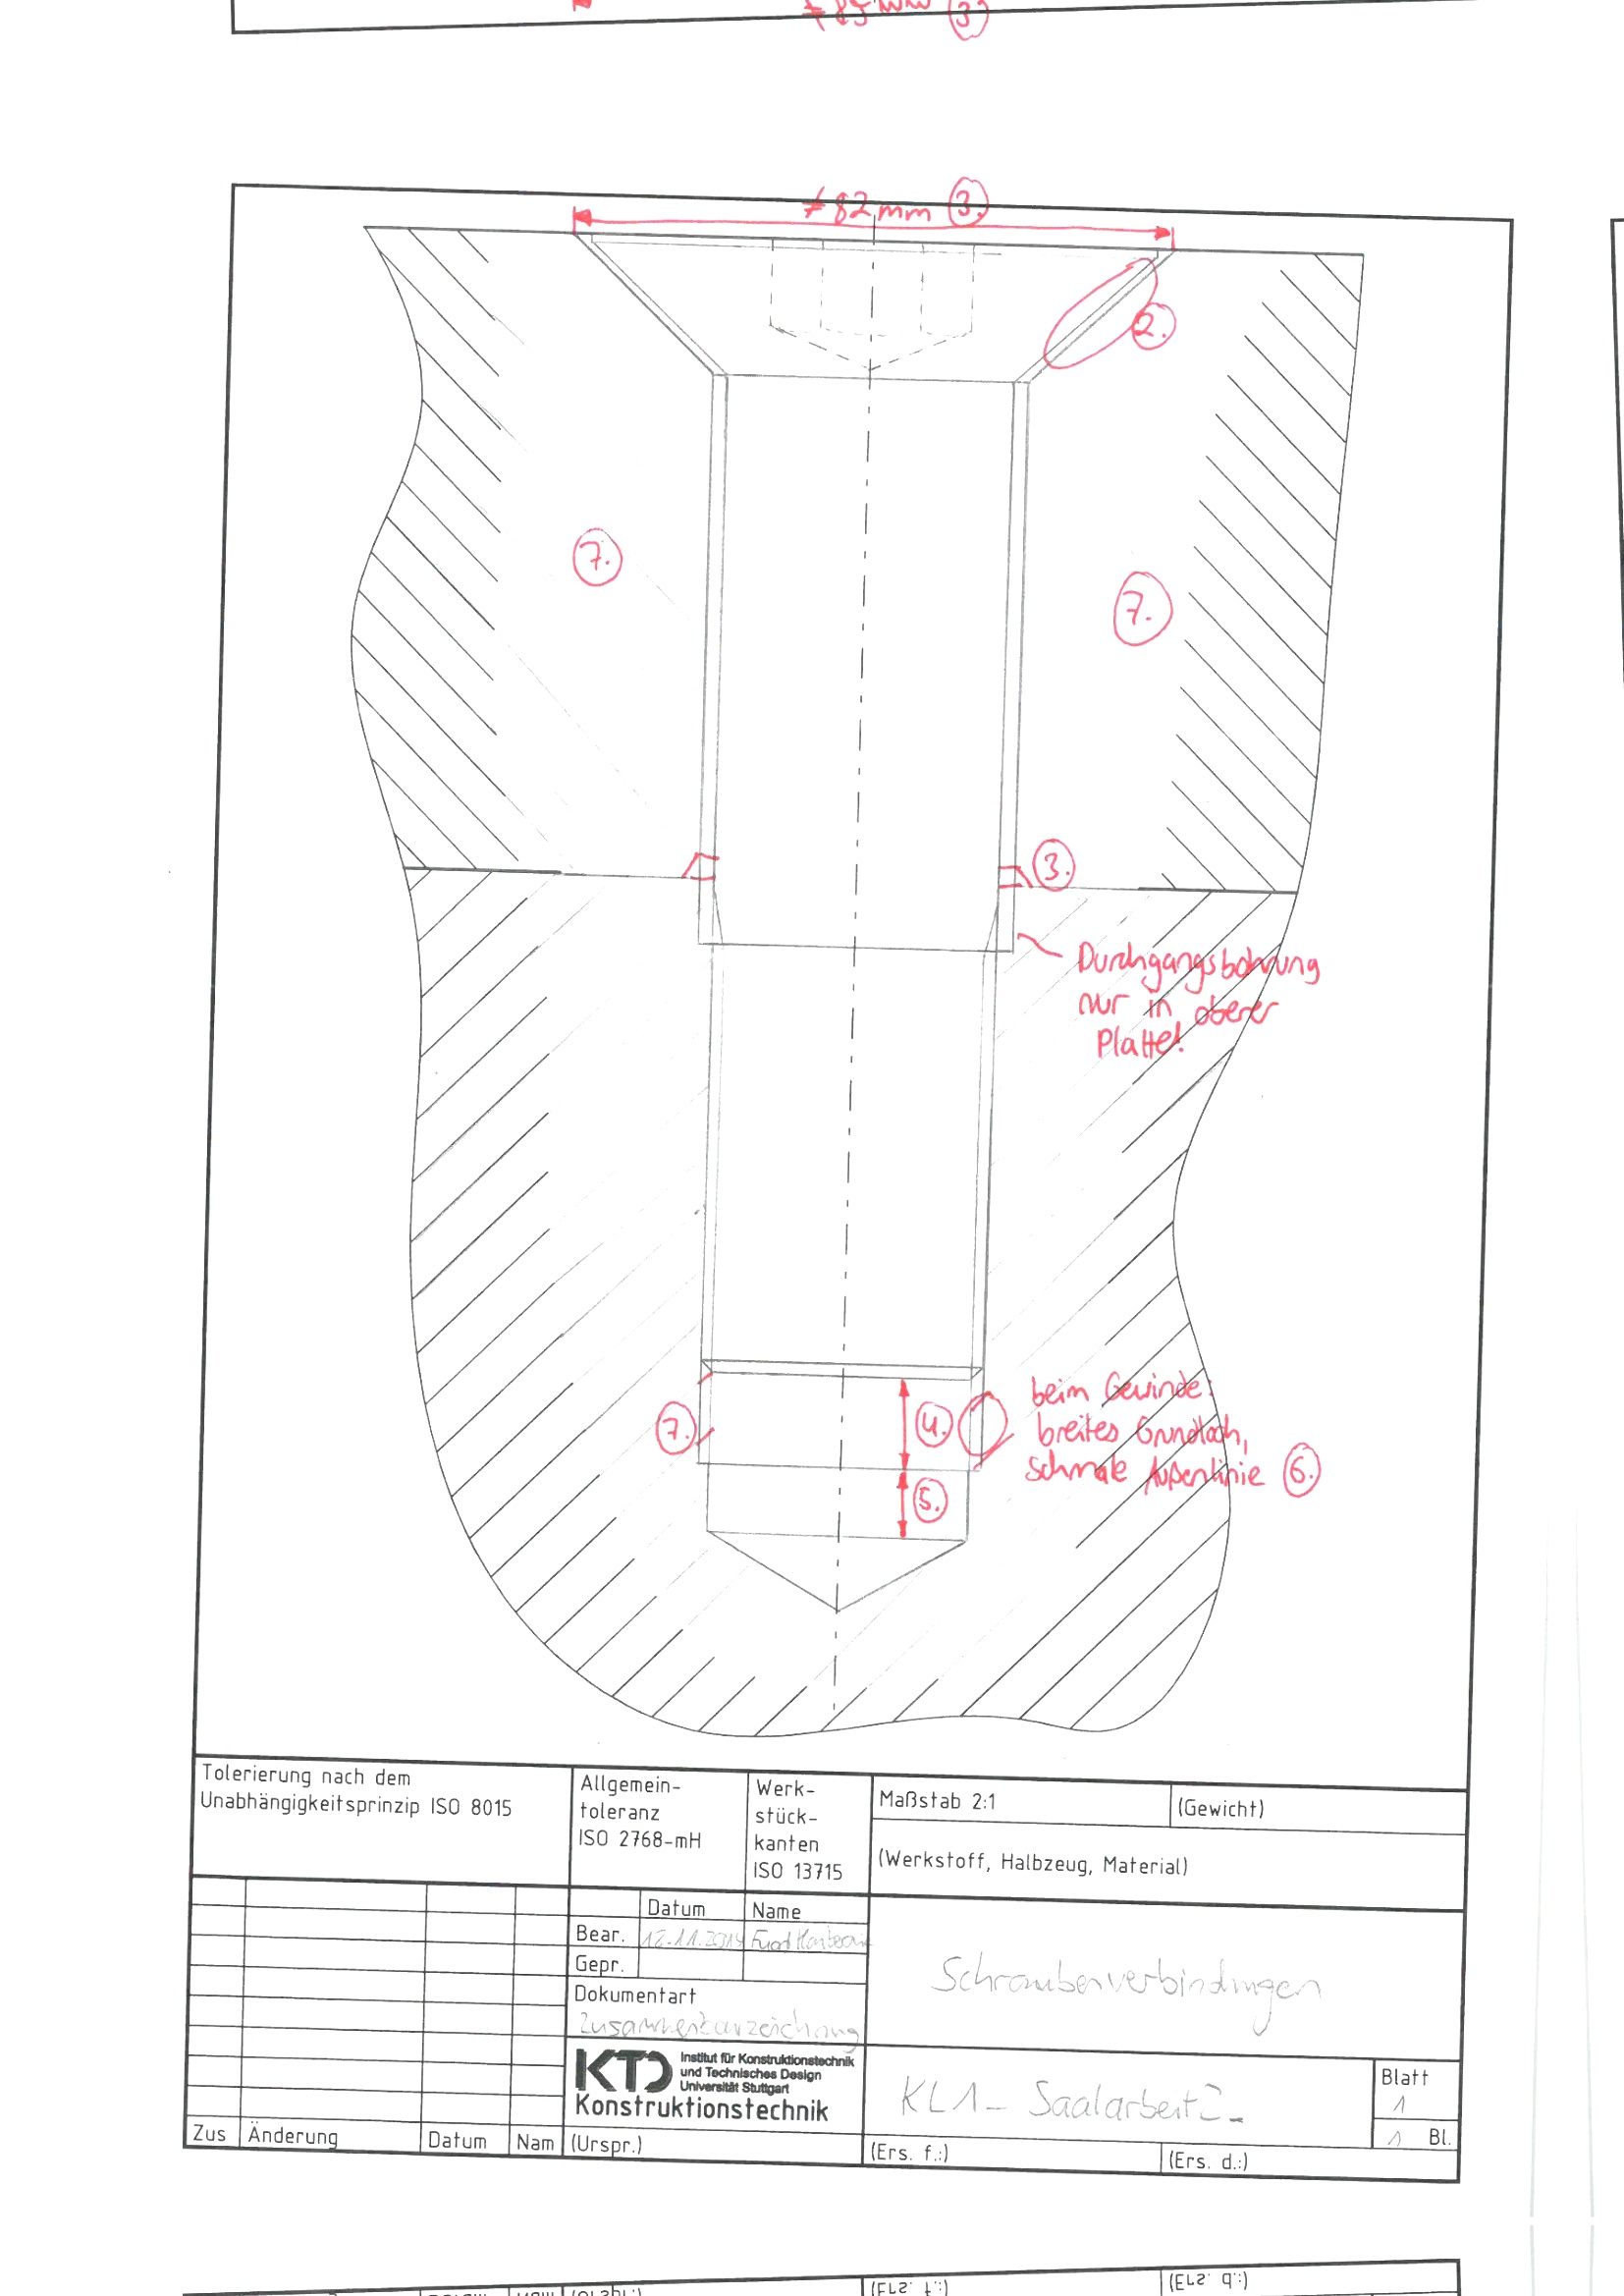 ≠ 82 mm 3.
2.
7.
7.
3.
Durchgangsbohrung
nur in oberer
Platte!
beim Gewinde:
breites Grundloch,
schmale Außenlinie 6.
7.
4.
5.
Tolerierung nach dem
Unabhängigkeitsprinzip ISO 8015
Allgemein-
toleranz
ISO 2768-mH
Werk-
stück-
kanten
ISO 13715
Maßstab 2:1
(Gewicht)
(Werkstoff, Halbzeug, Material)
Datum
Name
Bear.
Gepr.
Dokumentart
Schraubenverbindungen
KTD
Institut für Konstruktionstechnik
und Technisches Design
Universität Stuttgart
Konstruktionstechnik
KL1- Saalarbeit 2
Blatt
1
1 Bl.
Zus
Änderung
Datum
Nam
(Urspr.)
(Ers. f.:)
(Ers. d.:)